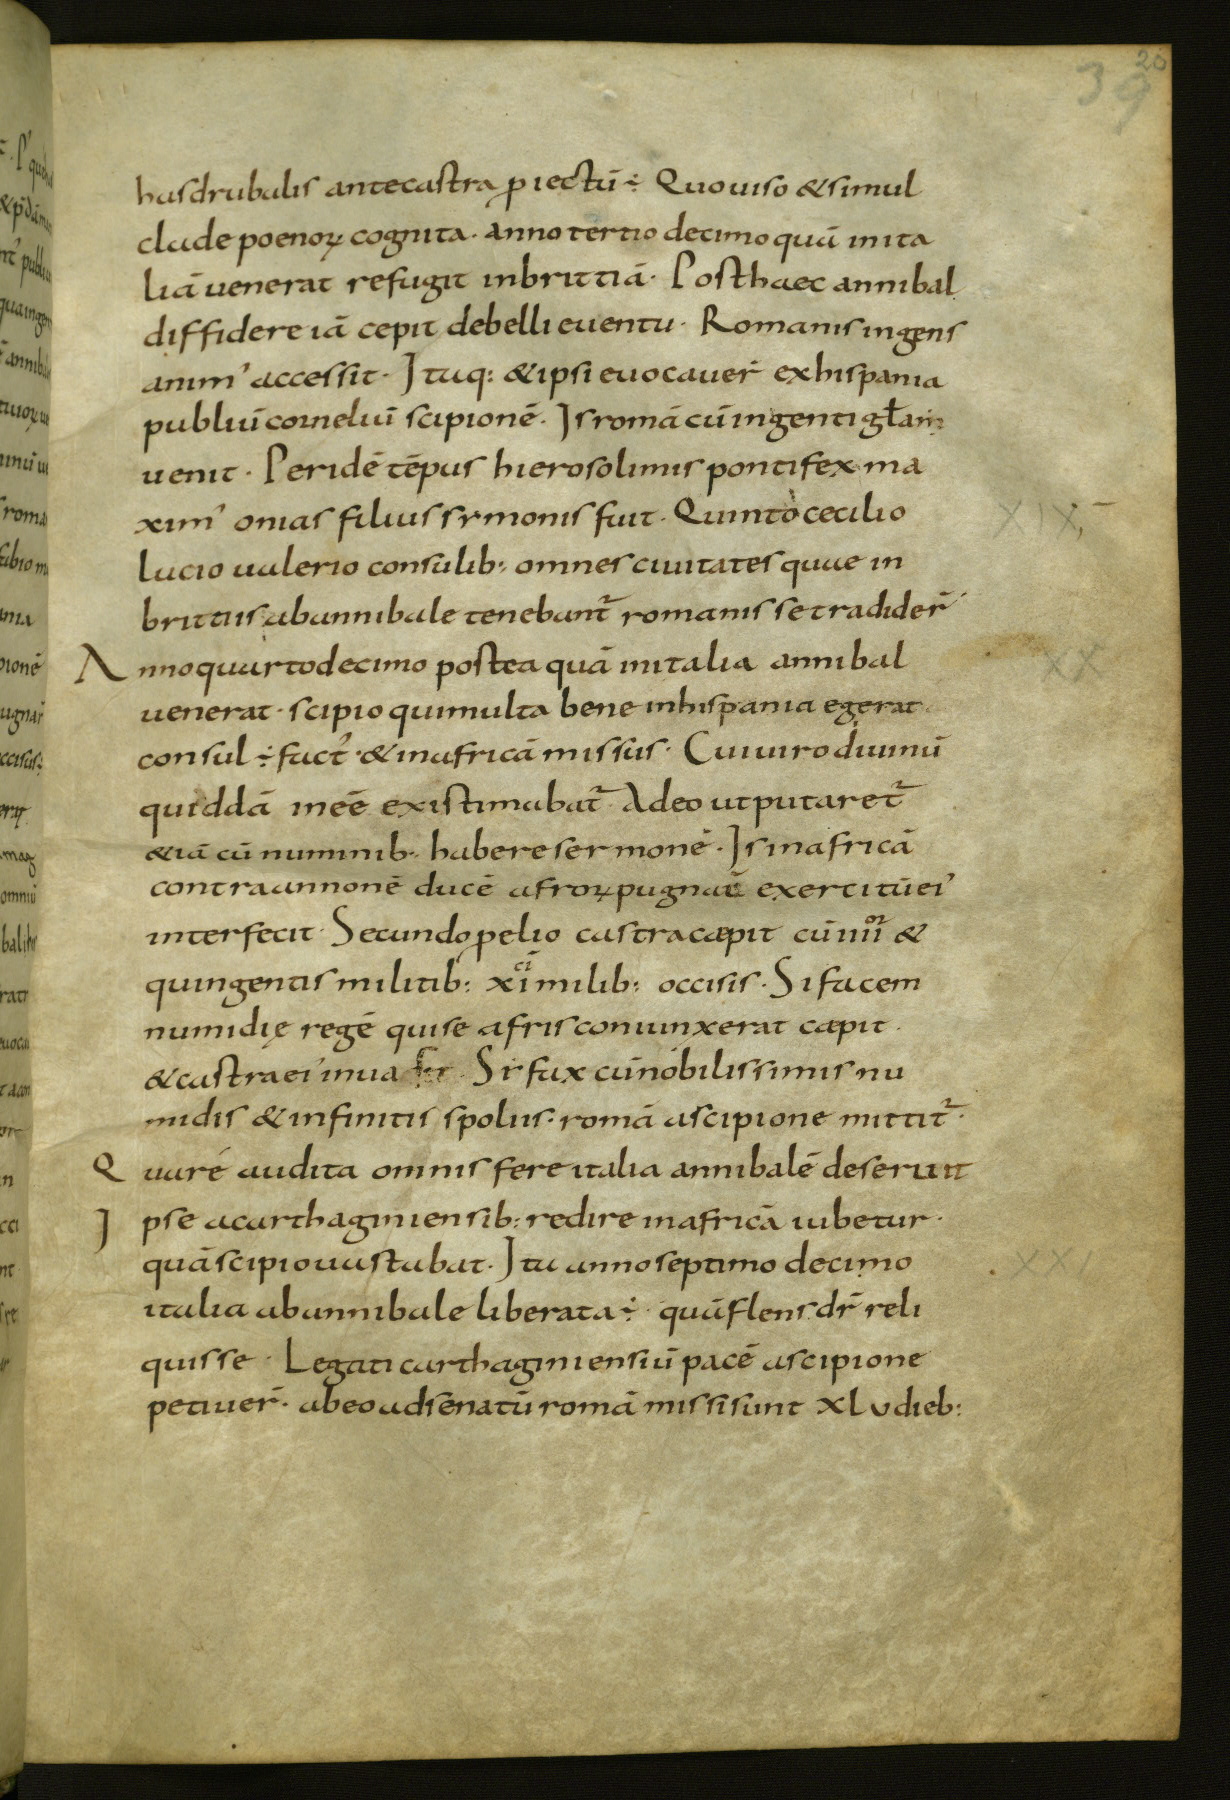 20
39
hasdrubalis ante castra ꝓiectū ÷ Quo uiso & simul
clade poenoꝝ cognita · anno tertio decimo quā in ita
liā uenerat refugit in brittiā · Post haec annibal
diffidere iā cepit de belli euentu · Romanis ingens
anim᾽ accessit · Itaq: & ipsi euocauer̄ ex hispania
publiū corneliū scipionē · Is romā cū ingenti gła
uenit · Per idē tēpus hierosolimis pontifex ma
xim᾽ onias filius symonis fuit · Quinto cecilio
XIX
lucio ualerio consulib: omnes ciuitates quae in
brittiis ab annibale tenebant̄ romanis se tradider̄
Anno quarto decimo postea quā in italia annibal
XX
uenerat · scipio qui multa bene in hispania egerat
consul ÷ fact᾽ · & in africā missus · Cui uiro diuinū
quiddā inēē existimabat̄ · Adeo ut putaret̄
&iā cū numinib · habere sermonē · Is in africā
contra annonē ducē afroꝝ pugnat̄ exercitū ei᾽
interfecit · Secundo ꝓelio castra caepit cū iiii or &
quingentis militib: xi ci milib: occisis · Sifacem
numidię regē qui se afris coniunxerat caepit ·
& castra ei᾽ inuasit · Syfax cū nobilissimis nu
midis & infinitis spoliis · romā a scipione mittit̄ ·
Qua re audita omnis fere italia annibalē deserunt
Ipse a carthaginiensib: redire in africā iubetur ·
quā scipio uastabat · Ita anno septimo decimo
XXI
italia ab annibale liberata ÷ · quā flens dr̄ reli
quisse · Legati carthaginiensiū pacē a scipione
petiuer̄ · ab eo ad senatū romā missi sunt xlv dieb: